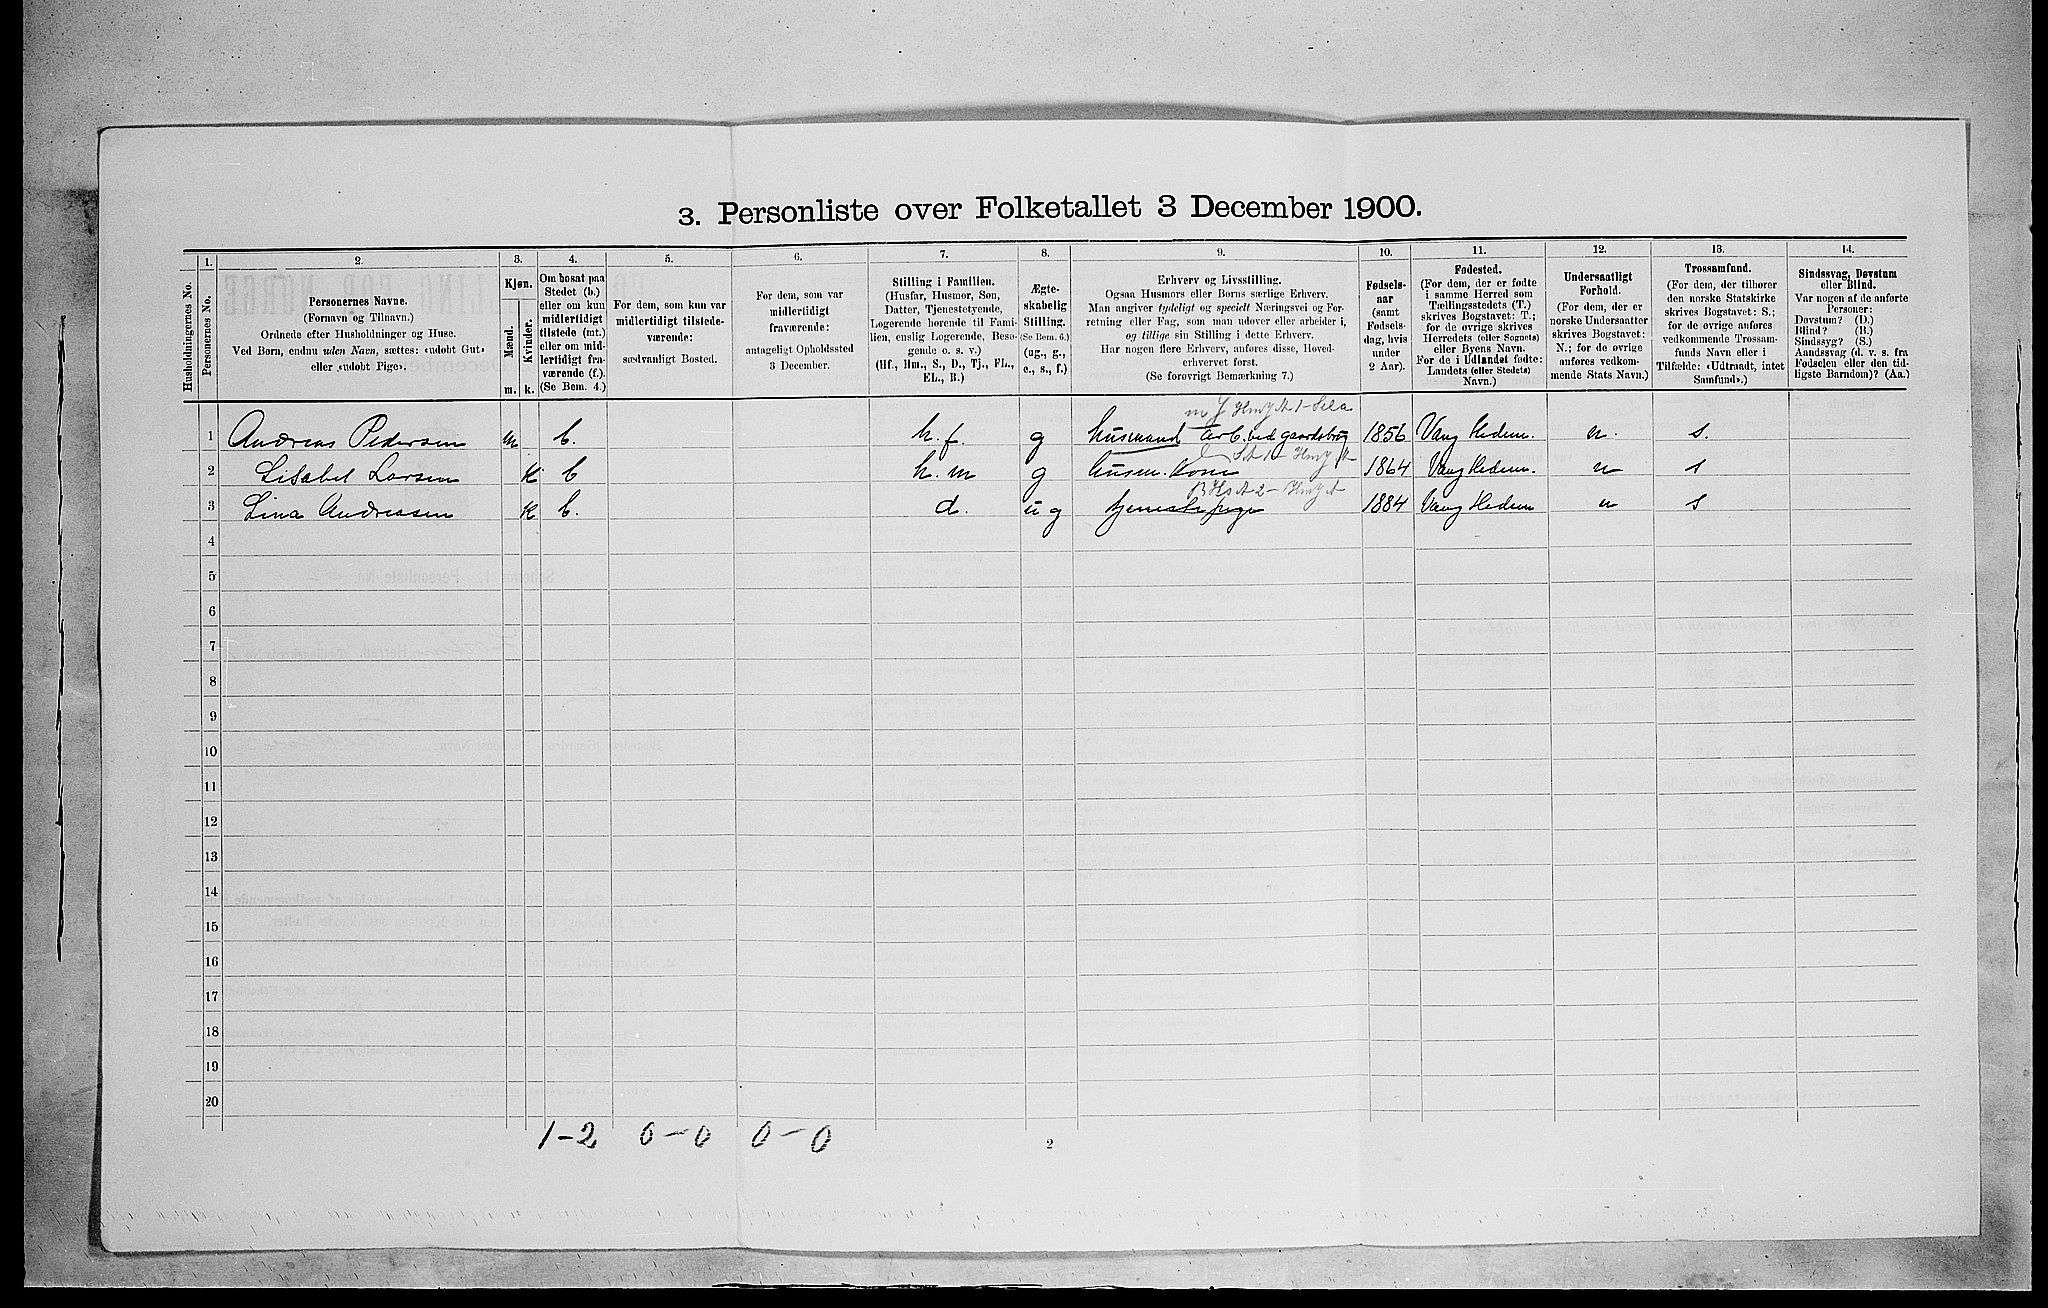 3. Personliste over Folketallet 3 December 1900.
1. 2. 3. 4. 5. 6. 7. 8. 9. 10. 11. 12. 13. 14.
Husholdningernes No.
Personernes No.
Personernes Navne.
(Fornavn og Tilnavn.)
Ordnede efter Husholdninger og Huse.
Ved Børn, endnu uden Navn, sættes: «udøbt Gut»
eller «udøbt Pige».
Kjøn.
Mænd.
Kvinder.
m. k.
Om bosat paa
Stedet (b.)
eller om kun
midlertidigt
tilstede (mt.)
eller om mid-
lertidigt fra-
værende (f.).
(Se Bem. 4.)
For dem, som kun var
midlertidigt tilstede-
værende:
sædvanligt Bosted.
For dem, som var
midlertidigt
fraværende:
antageligt Opholdssted
3 December.
Stilling i Familien.
(Husfar, Husmor, Søn,
Datter, Tjenestetyende,
Logerende hørende til Fami-
lien, enslig Logerende, Besø-
gende o. s. v.)
(Hf., Hm., S., D., Tj., FL.,
EL., B.)
Ægte-
skabelig
Stilling.
(Se Bem. 6.)
(ug., g.,
e., s., f.)
Erhverv og Livsstilling.
Ogsaa Husmors eller Børns særlige Erhverv.
Man angiver tydeligt og specielt Næringsvei og For-
retning eller Fag, som man udøver eller arbeider i,
og tillige sin Stilling i dette Erhverv.
Har nogen flere Erhverv, anføres disse, Hoved-
erhvervet først.
(Se forøvrigt Bemærkning 7.)
Fødsels-
aar
(samt
Fødsels-
dag, hvis
under
2 Aar).
Fødested.
(For dem, der er fødte
i samme Herred som
Tællingsstedets (T.)
skrives Bogstavet: T.;
for de øvrige skrives
Herredets (eller Sognets)
eller Byens Navn.
For de i Udlandet fødte:
Landets (eller Stedets)
Navn.)
Undersaatligt
Forhold.
(For dem, der er
norske Undersaatter
skrives Bogstavet:
N.; for de øvrige
anføres vedkom-
mende Stats Navn.)
Trossamfund.
(For dem, der tilhører
den norske Statskirke
skrives Bogstavet: S.;
for de øvrige anføres
vedkommende Trossam-
funds Navn eller i
Tilfælde: «Udtraadt, intet
Samfund».)
Sindssvag, Døvstum
eller Blind.
Var nogen af de anførte
Personer:
Døvstum? (D.)
Blind? (B.)
Sindssyg? (S.)
Aandssvag (d. v. s. fra
Fødselen eller den tid-
ligste Barndom)? (Aa.)
1 Andreas Pedersen m b. h. f. g husmand arb. ved gaardsbrug 1856 Vang Hedem. n. s.
2 Lisabet Larsen k b h. m g husm. kone 1864 Vang Hedem. n s
3 Lina Andreasen k b. d. u g tjenestepige 1884 Vang Hedem n s
4
5
6
7
8
9
10
11
12
13
14
15
16
17
18
19
20
1-2 0-0 0-0
2